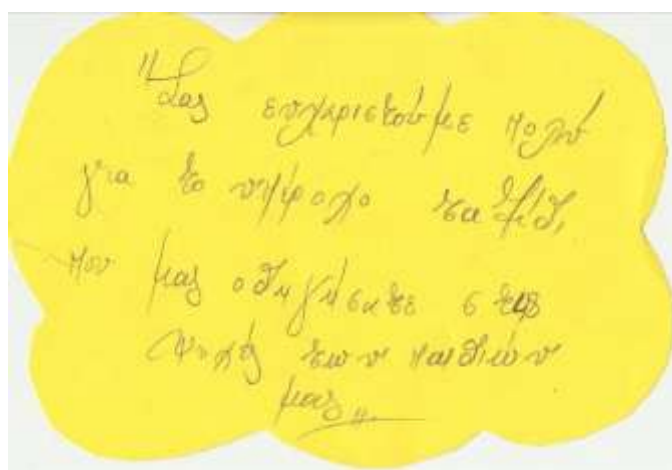 "Σας ευχαριστούμε πολύ
για το υπέροχο ταξίδι
που μας οδηγήσατε στις
ψυχές των παιδιών
μας"